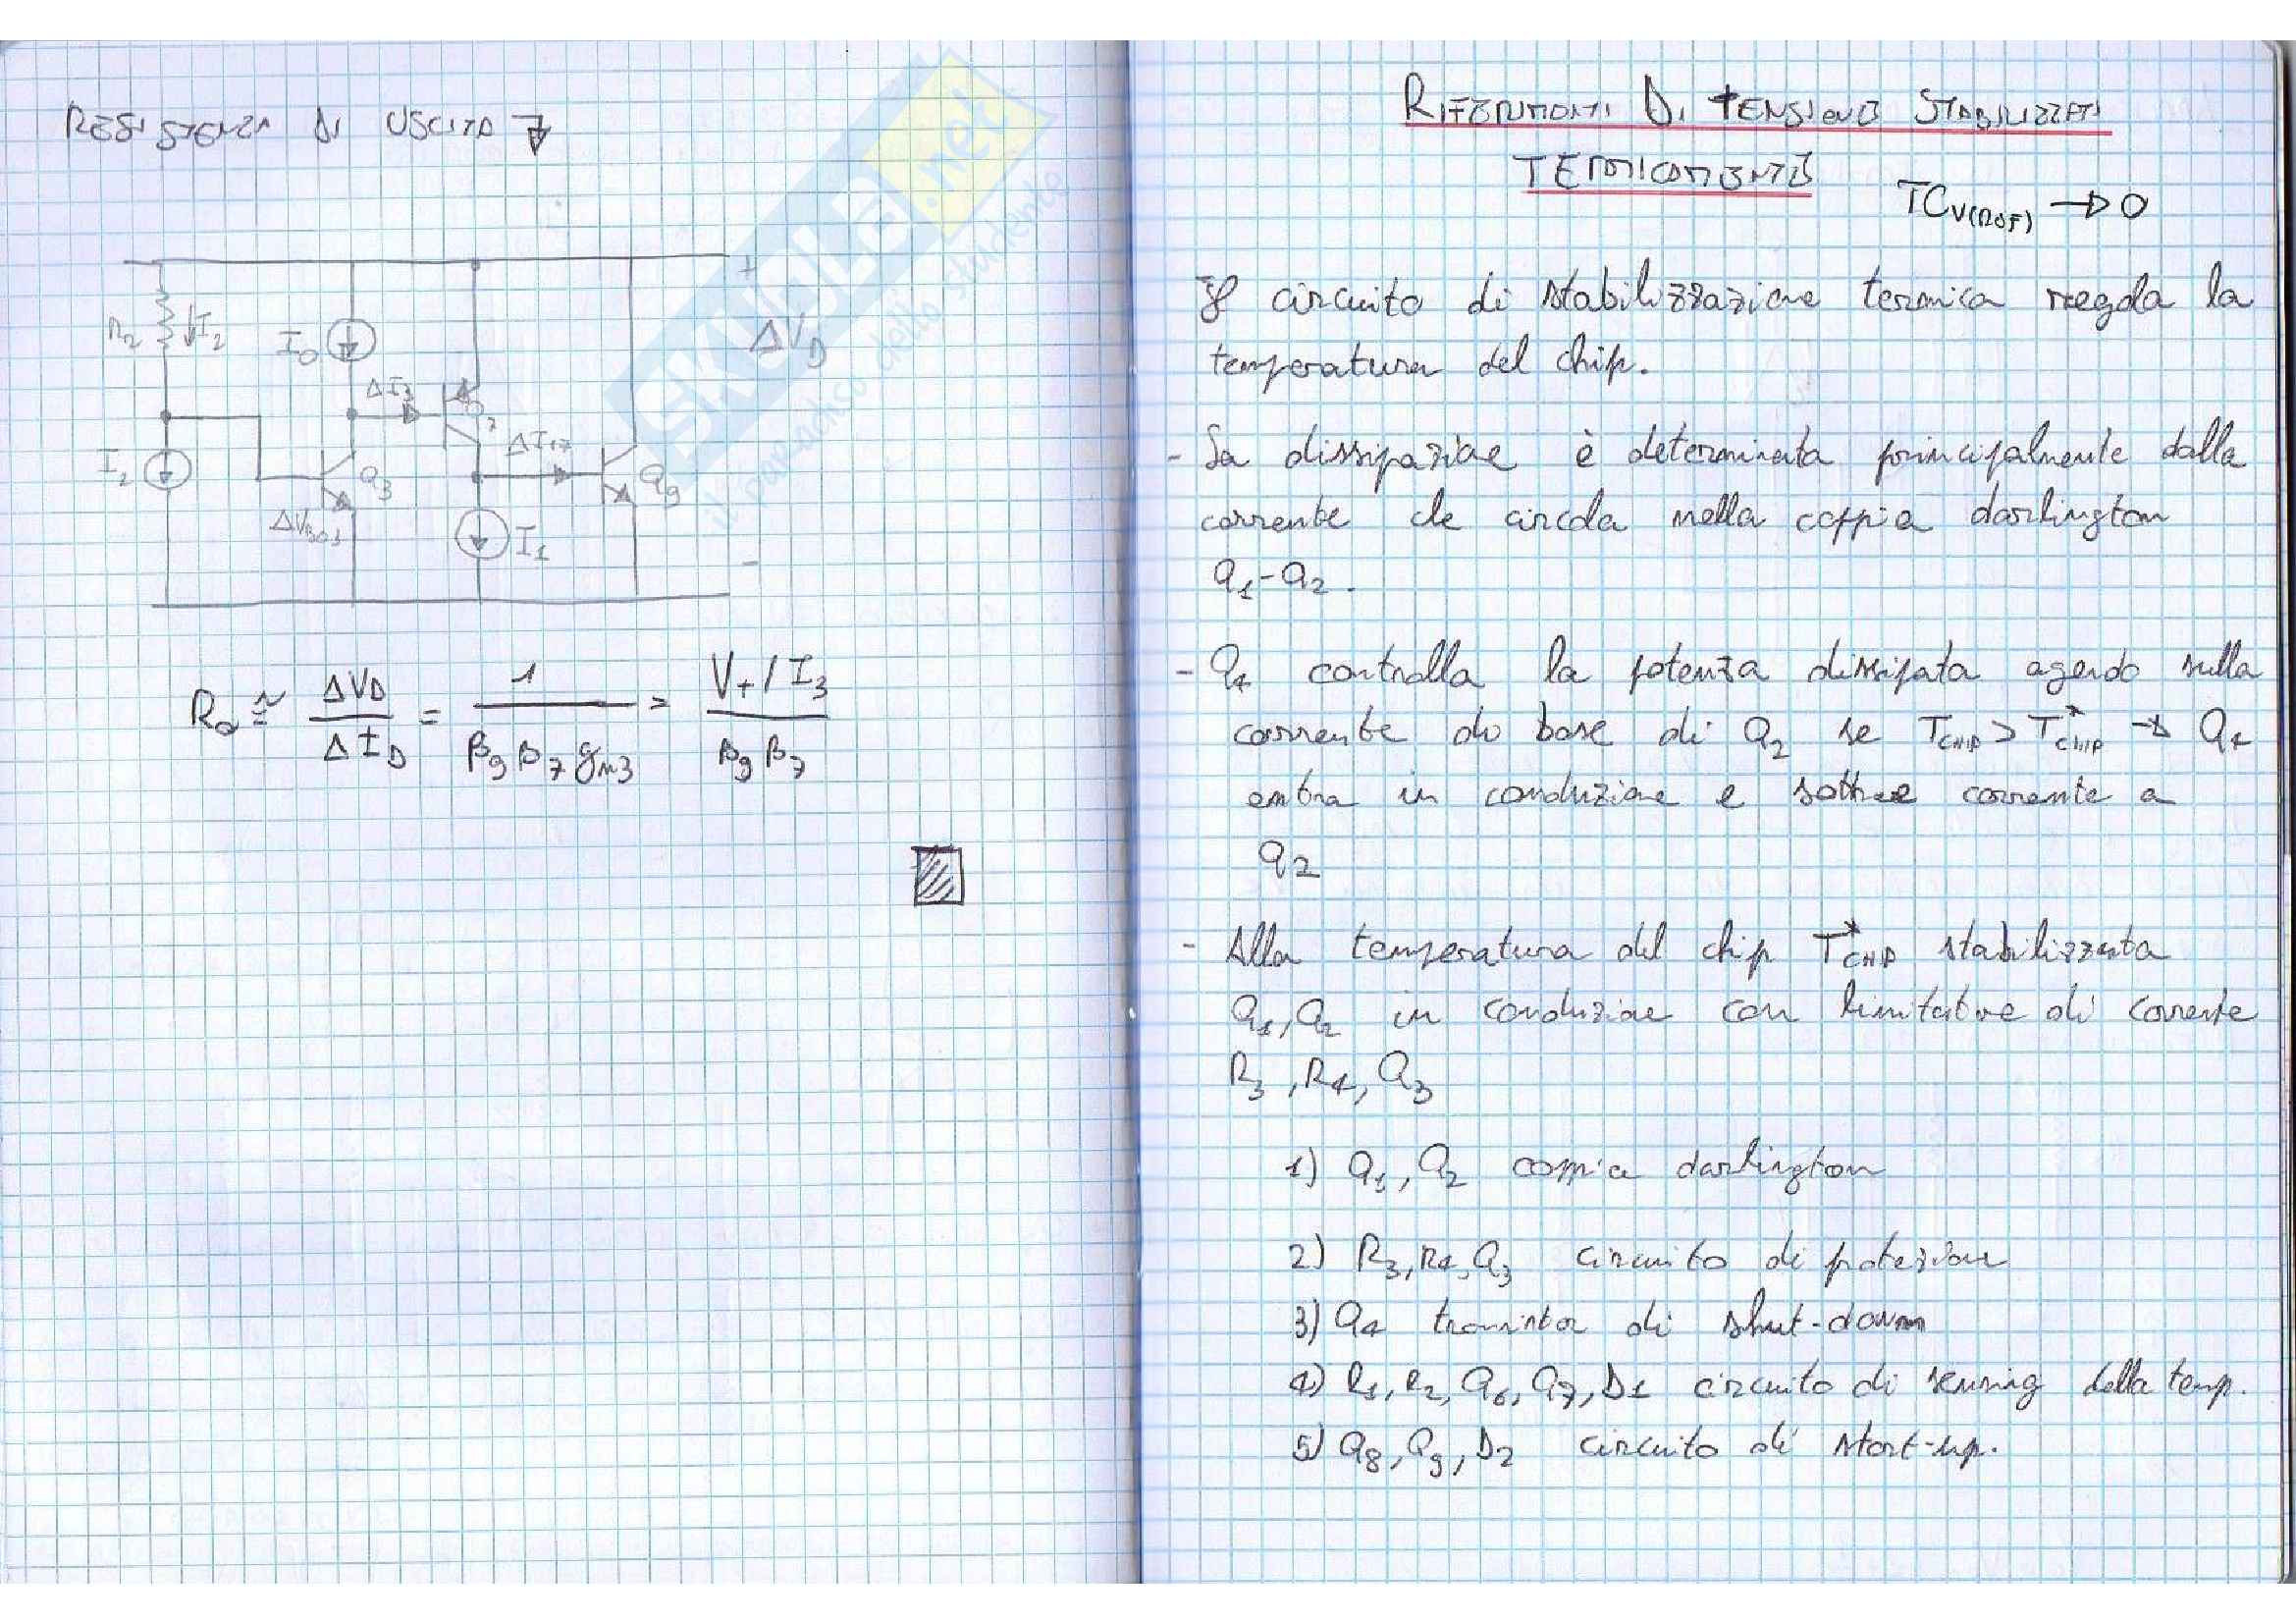 RESISTENZA DI USCITA
R2 I2 I0 ΔI3 Q7 ΔVD
I2 Q3 ΔI17 Q9
ΔVBE3 I1
Ro ≅ ΔVD / ΔID = 1 / (β9 β7 gm3) = (VT / I3) / (β9 β7)
SKUOLA.net
il paradiso dello studente
RIFERIMENTI DI TENSIONE STABILIZZATI
TERMICAMENTE
TCV(REF) → 0
Il circuito di stabilizzazione termica regola la
temperatura del chip.
- La dissipazione è determinata principalmente dalla
corrente che circola nella coppia darlington
Q1-Q2.
- Q4 controlla la potenza dissipata agendo sulla
corrente di base di Q2 se TCHIP > T*CHIP → Q4
entra in conduzione e sottrae corrente a
Q2
- Alla temperatura del chip T*CHIP stabilizzata
Q1, Q2 in conduzione con limitatore di corrente
R3, R4, Q3
1) Q1, Q2 coppia darlington
2) R3, R4, Q3 circuito di protezione
3) Q4 transistor di shut-down
4) R1, R2, Q6, Q7, D1 circuito di sensing della temp.
5) Q8, Q9, D2 circuito di start-up.